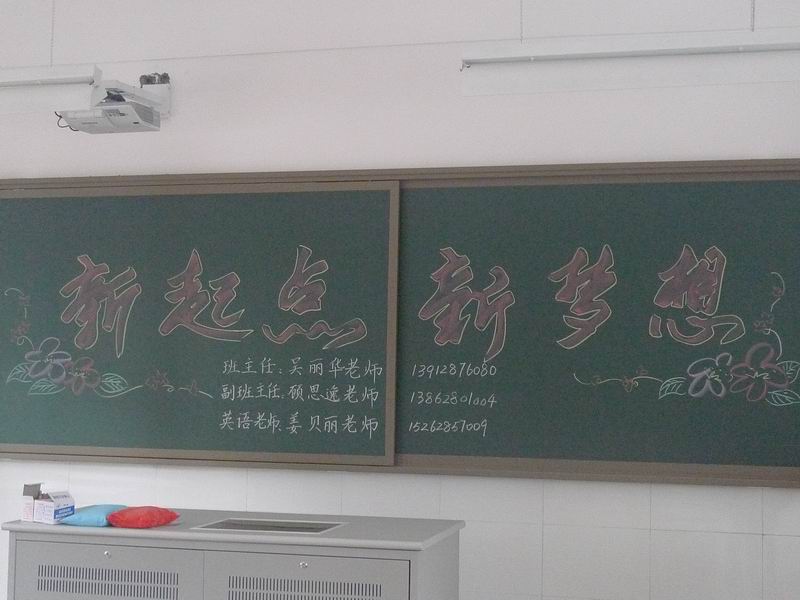 新起点 新梦想
班主任:吴丽华老师 13912876080
副班主任:顾思逸老师 13862801004
英语老师:姜贝丽老师 15262857009